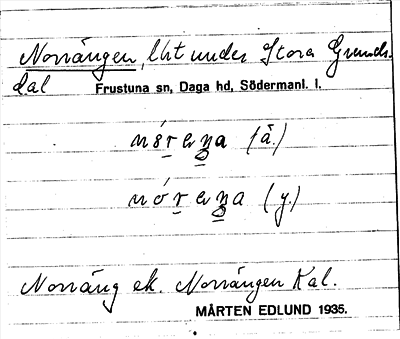 Norrängen, lht under Stora Grunds-
dal Frustuna sn, Daga hd, Södermanl. l.
(å.)
(y.)
Norräng ek. Norrängen Kal.
MÅRTEN EDLUND 1935.